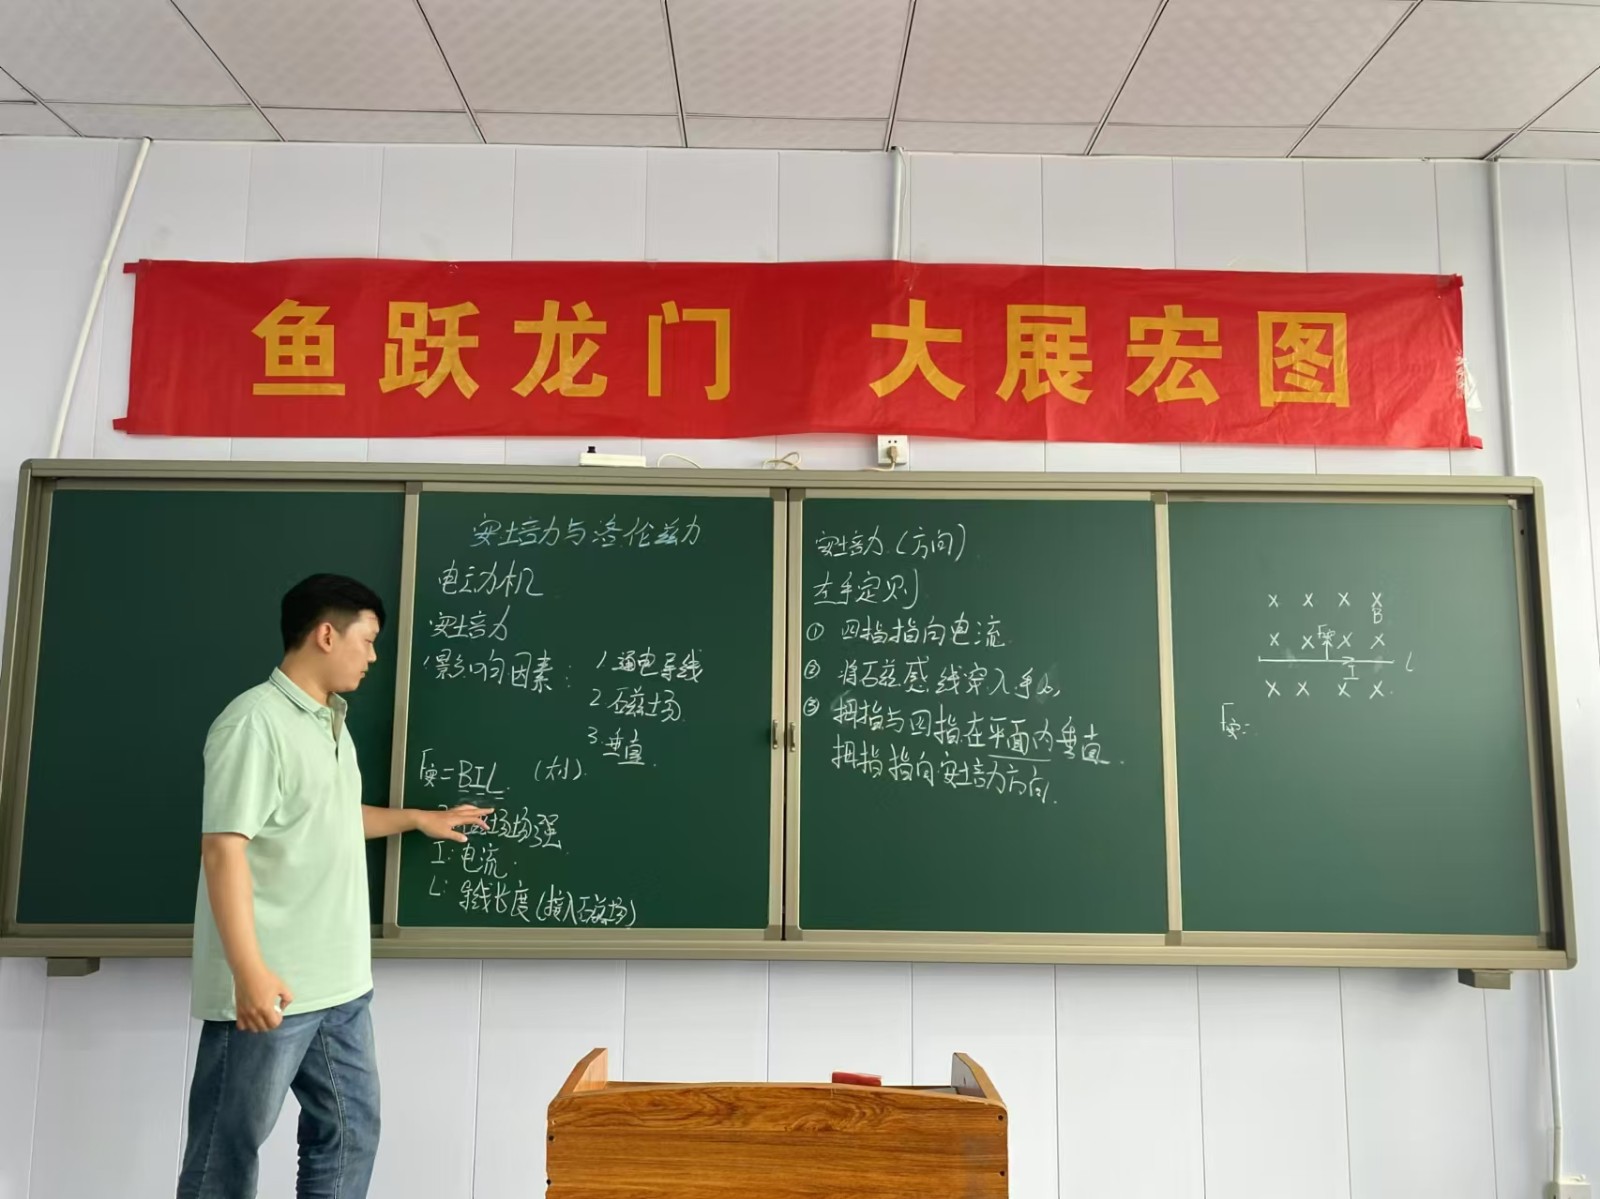 鱼跃龙门 大展宏图
安培力与洛伦兹力
电动机
安培力
影响因素: 1.通电导线
2.磁场
3.垂直
F安=BIL (大小)
磁场场强
I:电流.
L:导线长度(接入磁场)
安培力(方向)
左手定则
① 四指指向电流
② 将磁感线穿入手心
③ 拇指与四指在平面内垂直.
拇指指向安培力方向.
× × × ×
B
× × F安 × ×
I L
× × × ×
F安=